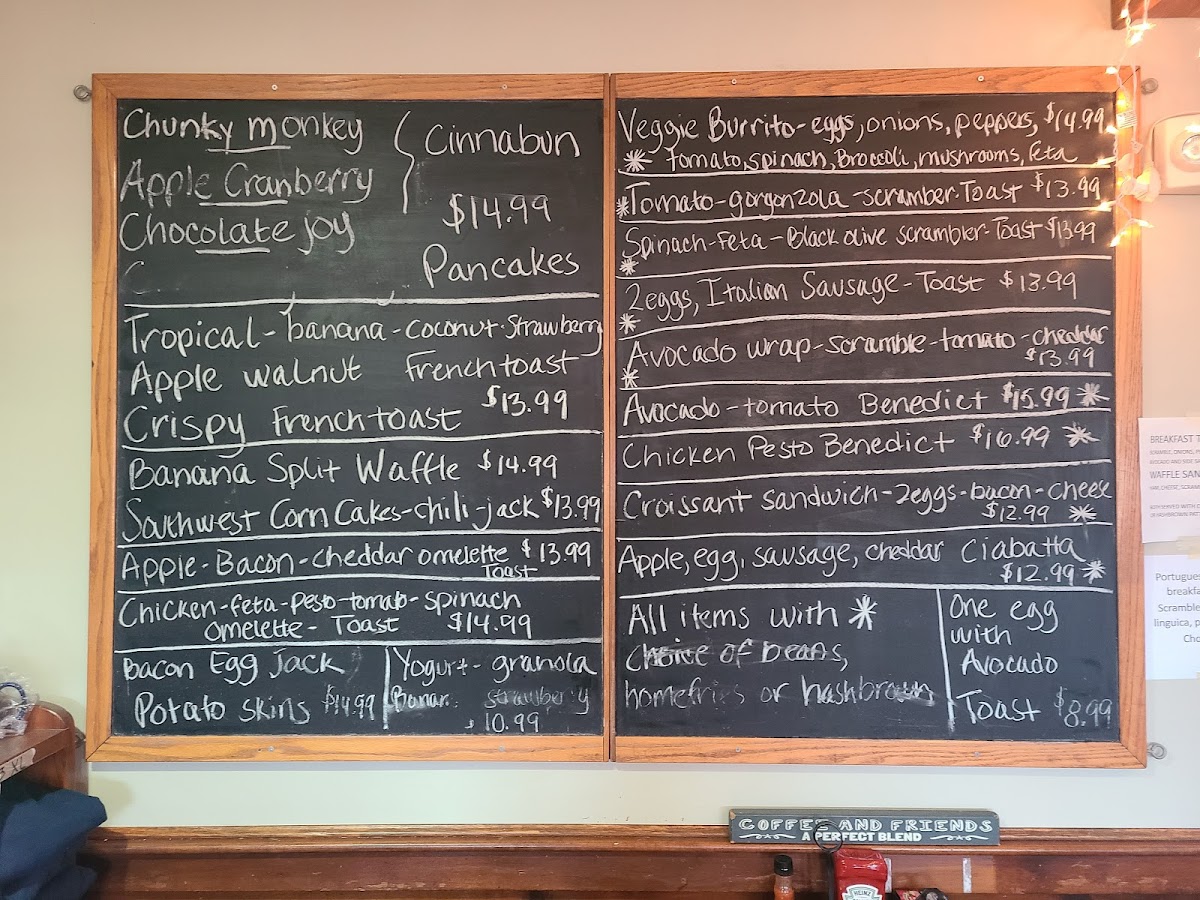 Chunky monkey
Apple Cranberry
Chocolate joy
C
Cinnabun
$14.99
Pancakes
Tropical - banana - coconut - Strawberry
Apple walnut Frenchtoast
Crispy Frenchtoast $13.99
Banana Split Waffle $14.99
Southwest Corn Cakes - chili - jack $13.99
Apple - Bacon - cheddar omelette $13.99
Toast
Chicken - feta - pesto - tomato - spinach
omelette - Toast $14.99
Bacon Egg Jack
Potato skins $14.99
Yogurt - granola
Banan strawber y
10.99
Veggie Burrito - eggs, onions, peppers, $14.99
* tomato, spinach, Broccoli, mushrooms, feta
* Tomato - gorgonzola - scramber - Toast $13.99
Spinach - Feta - Black olive scrambler - Toast $13.99
*
2 eggs, Italian Sausage - Toast $13.99
*
Avocado wrap - scramble - tomato - cheddar
* $13.99
Avocado - tomato Benedict $15.99 *
Chicken Pesto Benedict $16.99 *
Croissant sandwich - 2eggs - bacon - cheese
$12.99 *
Apple, egg, sausage, cheddar Ciabatta
$12.99 *
All items with *
choice of beans,
homefries or hashbrown
One egg
with
Avocado
Toast $8.99
BREAKFAST T
WAFFLE SAN
Portugues
breakfa
Scramble
linguica, p
Cho
COFFEE AND FRIENDS
A PERFECT BLEND
HEINZ